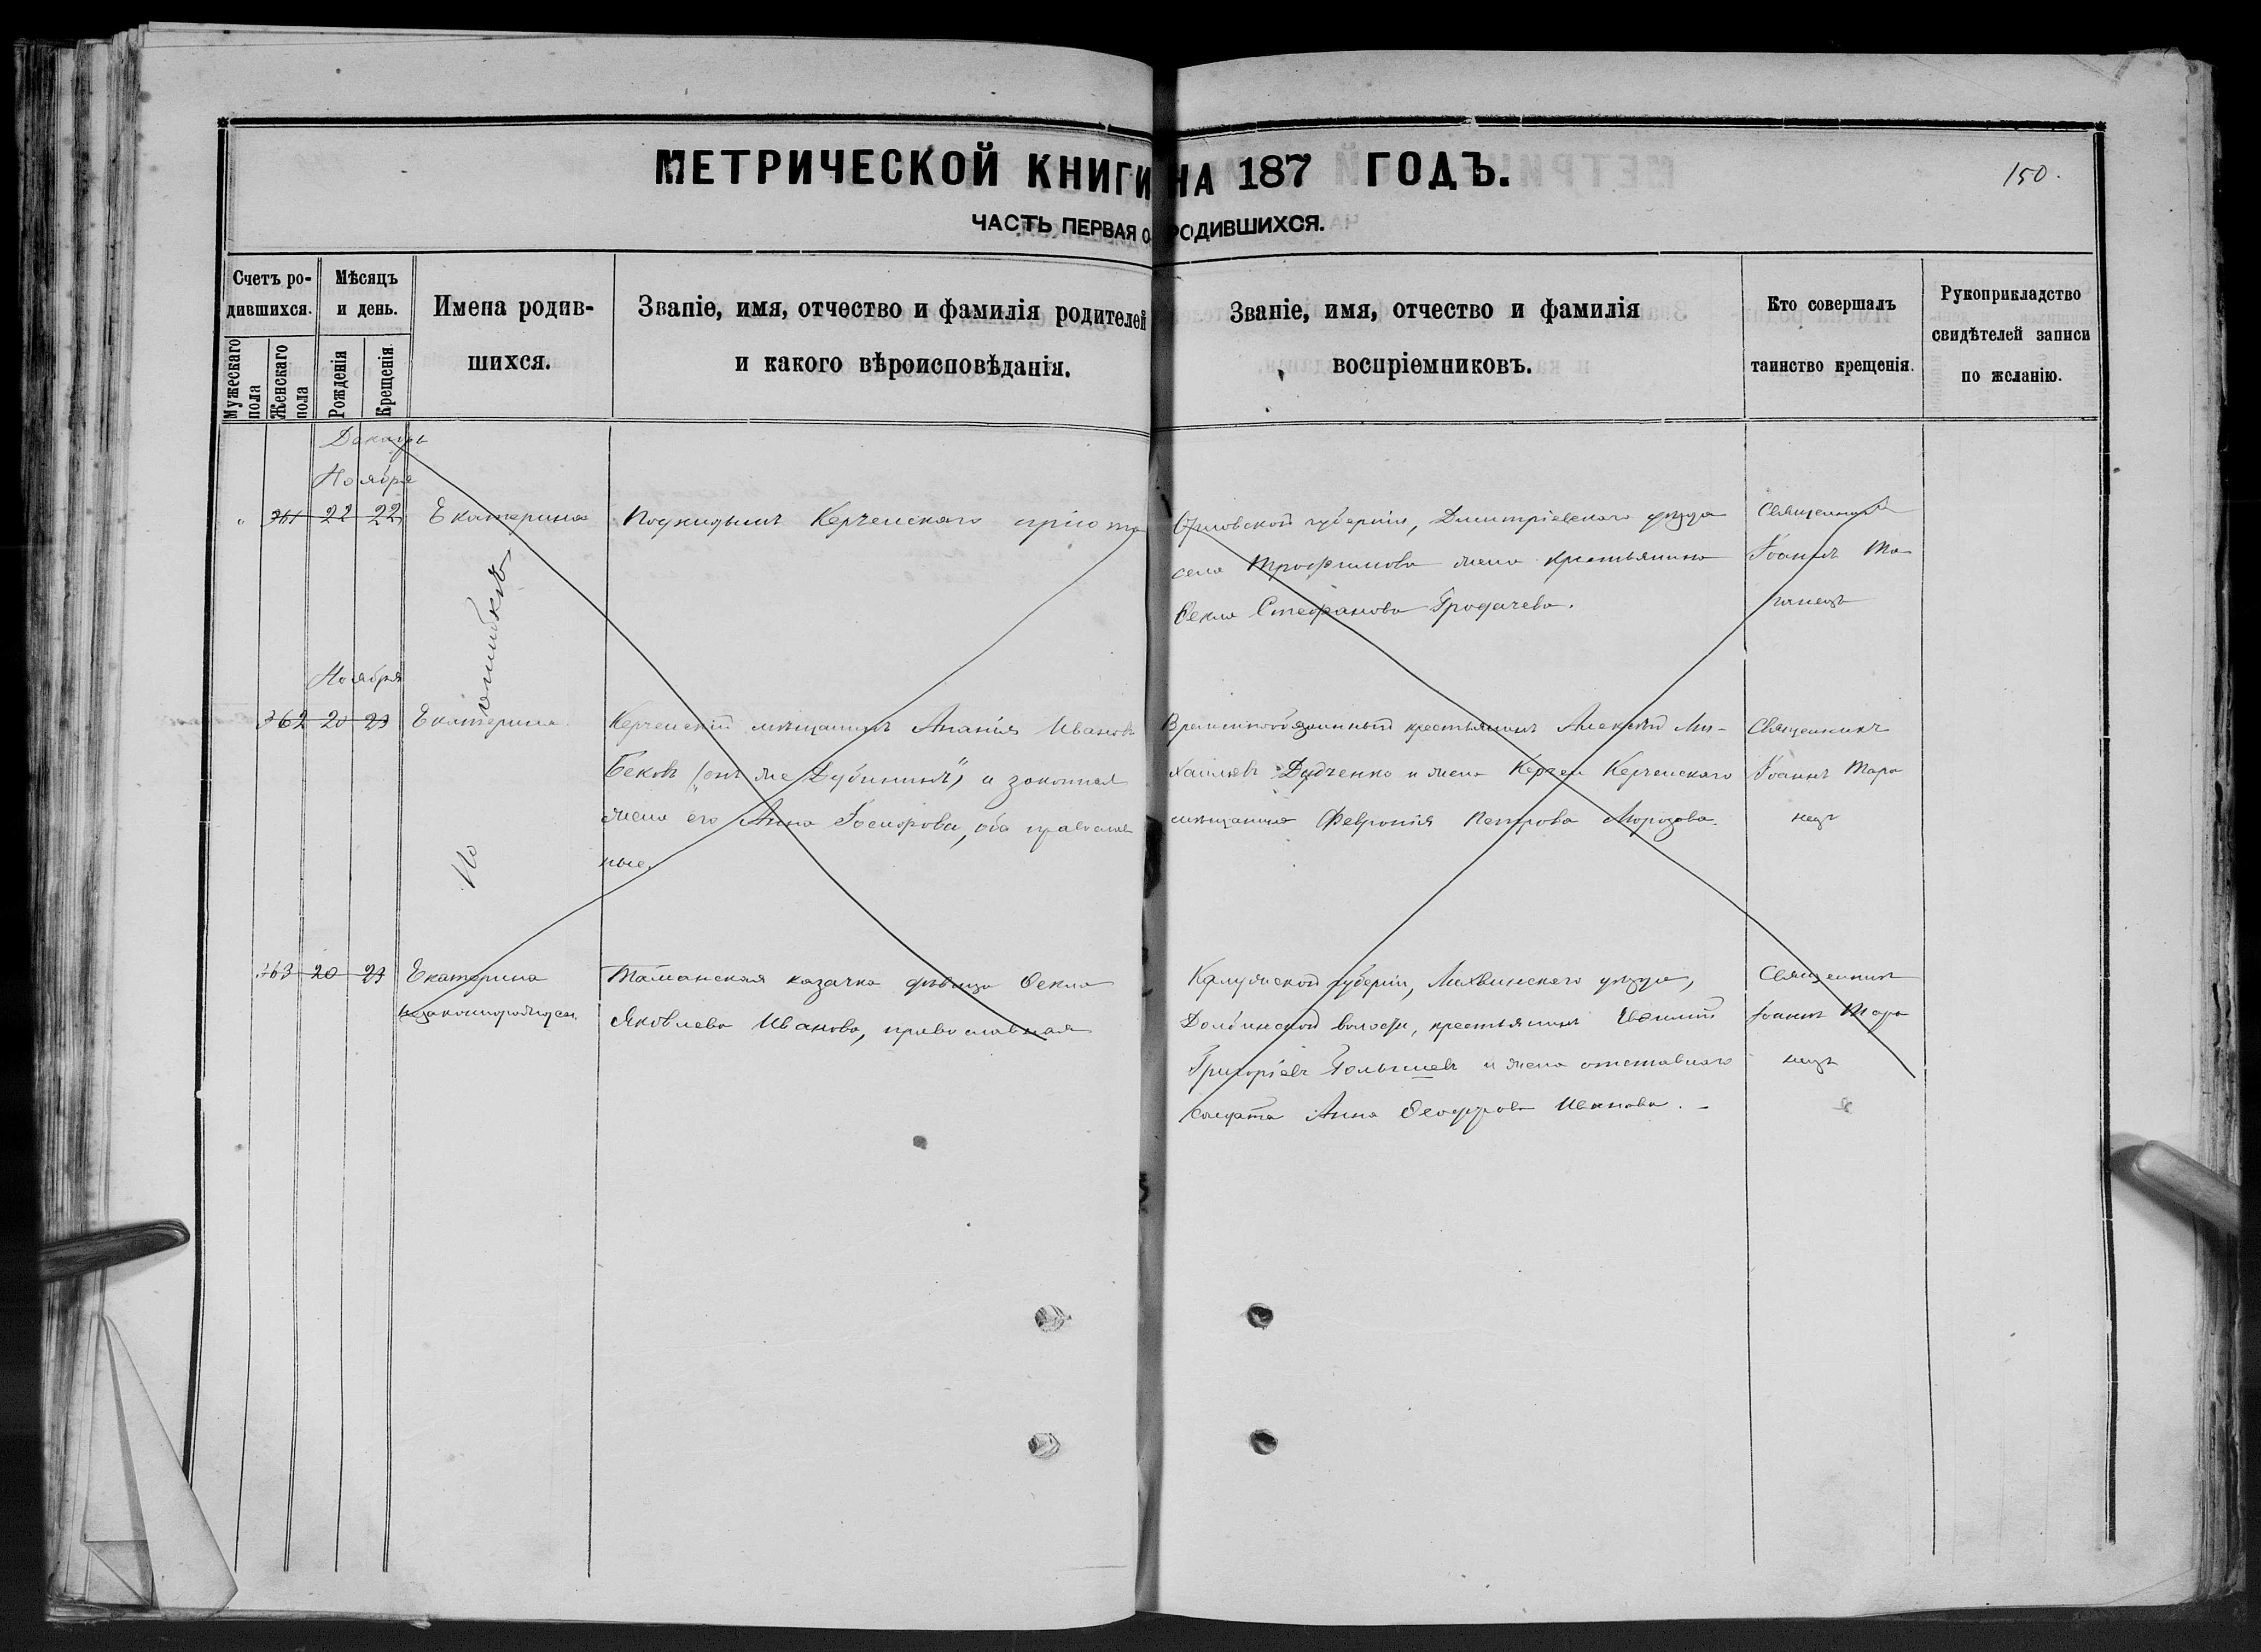 МЕТРИЧЕСКОЙ КНИГИ НА 187 ГОДЪ.
150.
ЧАСТЬ ПЕРВАЯ О РОДИВШИХСЯ.
Счетъ родившихся.
Мужескаго пола
Женскаго пола
Мѣсяцъ и день.
Рожденія
Крещенія.
Имена родив-
шихся.
Званіе, имя, отчество и фамилія родителей
и какого вѣроисповѣданія.
Званіе, имя, отчество и фамилія
воспріемниковъ.
Кто совершалъ
таинство крещенія.
Рукоприкладство
свидѣтелей записи
по желанію.
Декабрь
Ноября
" 361 22 22 Екатерина
Подкидышъ Керченскаго пріюта
Орловской губерніи, Дмитріевскаго уѣзда
села Трофимова жена крестьянина
Ѳекла Стефанова
Священникъ
Іоаннъ Та-
ранецъ
По ошибкѣ
Ноября
362 20 23 Екатерина
Керченскій мѣщанинъ Ананія Ивановъ
Бековъ (онъ же „Дубининъ") и законная
жена его Анна Госифова, оба православ
ные.
Временнообязанный крестьянинъ Алексѣй Ми-
хайловъ Дудченко и жена Керчен Керченскаго
мѣщанина Февронія Петрова Морозова.
Священникъ
Іоаннъ Тара
нецъ
363 20 23 Екатерина
незаконнорожден.
Таманская казачка дѣвица Ѳекла
Яковлева Иванова, православная
Калужской губерніи, Лихвинскаго уѣзда,
Долбинской волости, крестьянинъ
Григоріевъ и жена отставнаго
солдата Анна Ѳеодорова Иванова.
Священникъ
Іоаннъ Тара
нецъ